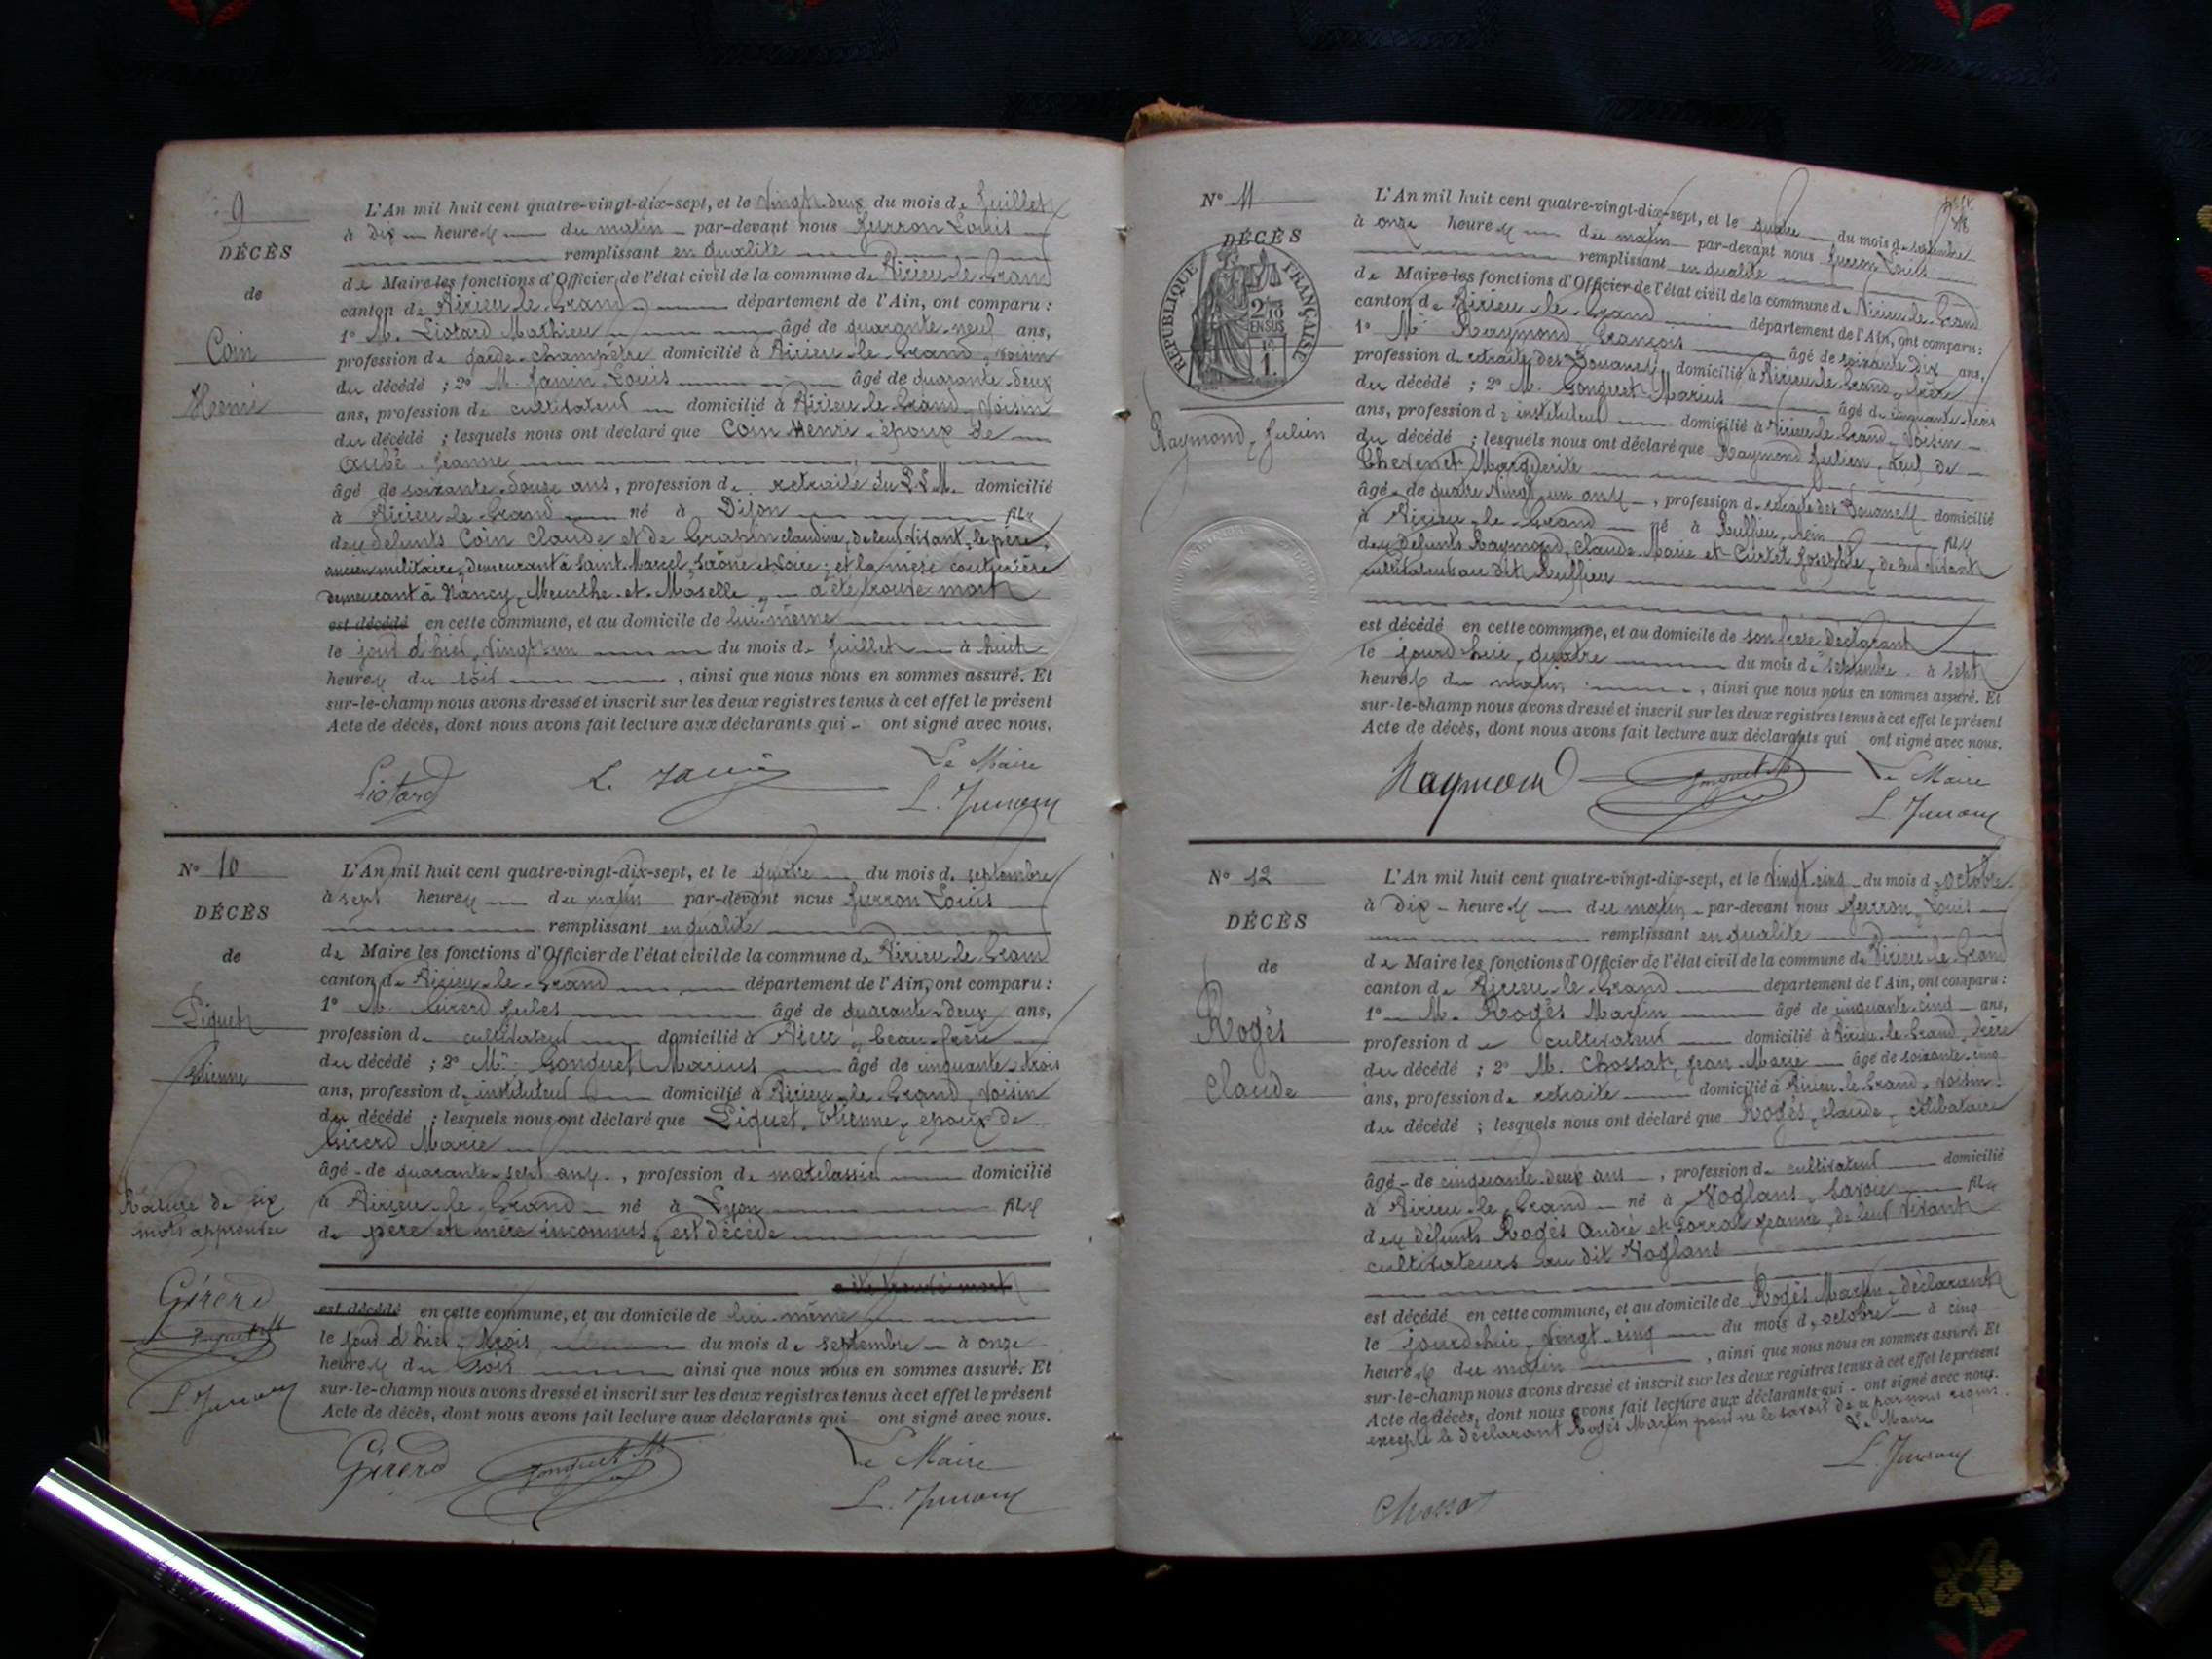 9
DÉCÈS
de
Coin
Henri
L'An mil huit cent quatre-vingt-dix-sept, et le vingt-deux du mois de Juillet
à dix heures du matin par-devant nous Jurron Louis
remplissant en qualité
de Maire les fonctions d'Officier de l'état civil de la commune de Virieu-le-Grand
canton de Virieu-le-Grand, département de l'Ain, ont comparu :
1° M. Liotard Mathieu âgé de quarante-neuf ans,
profession de garde-champêtre domicilié à Virieu-le-Grand, voisin
du décédé ; 2° M. Janin, Louis âgé de quarante-deux
ans, profession de cultivateur domicilié à Virieu-le-Grand, voisin
du décédé ; lesquels nous ont déclaré que Coin Henri, époux de
Aubé, Jeanne
âgé de soixante-douze ans, profession de retraité du P.L.M. domicilié
à Virieu-le-Grand né à Dijon fils
des défunts Coin Claude et de Graphin claudine, de leur vivant, le père,
ancien militaire, demeurant à Saint-Marcel, Saône et Loire ; et la mère couturière
demeurant à Nancy, Meurthe-et-Moselle, a été trouvé mort
est décédé en cette commune, et au domicile de lui-même
le jour d'hier, vingt-un du mois de Juillet à huit
heures du soir, ainsi que nous nous en sommes assuré. Et
sur-le-champ nous avons dressé et inscrit sur les deux registres tenus à cet effet le présent
Acte de décès, dont nous avons fait lecture aux déclarants qui ont signé avec nous.
Liotard L. Janin Le Maire
L. Jurron
N° 10
DÉCÈS
de
Piquet
Etienne
L'An mil huit cent quatre-vingt-dix-sept, et le quatre du mois de septembre
à sept heures du matin par-devant nous Jurron Louis
remplissant en qualité
de Maire les fonctions d'Officier de l'état civil de la commune de Virieu-le-Grand
canton de Virieu-le-Grand département de l'Ain, ont comparu :
1° M. Girerd Jules âgé de quarante-deux ans,
profession de cultivateur domicilié à , beau-frère
du décédé ; 2° Mr Gonguet Marius âgé de cinquante-trois
ans, profession de instituteur domicilié à Virieu-le-Grand, voisin
du décédé ; lesquels nous ont déclaré que Piquet, Etienne, époux de
Girerd Marie
âgé de quarante-sept ans, profession de matelassier domicilié
à Virieu-le-Grand né à Lyon fils
de père et mère inconnus, est décédé
a été trouvé mort
est décédé en cette commune, et au domicile de lui-même
le jour d'hier, trois du mois de septembre à onze
heures du soir ainsi que nous nous en sommes assuré. Et
sur-le-champ nous avons dressé et inscrit sur les deux registres tenus à cet effet le présent
Acte de décès, dont nous avons fait lecture aux déclarants qui ont signé avec nous.
Rature de six
mots approuvée
Girerd
Gonguet M
L. Jurron
Girerd Gonguet M Le Maire
L. Jurron
N° 11
DÉCÈS
RÉPUBLIQUE FRANÇAISE
2/10
EN SUS
1
Raymond, Julien
L'An mil huit cent quatre-vingt-dix-sept, et le quatre du mois de septembre
à onze heures du matin par-devant nous Jurron Louis
remplissant en qualité
de Maire les fonctions d'Officier de l'état civil de la commune de Virieu-le-Grand
canton de Virieu-le-Grand département de l'Ain, ont comparu :
1° Mr Raymond, François âgé de soixante-dix ans,
profession de retraité des Douanes domicilié à Virieu-le-Grand, frère
du décédé ; 2° M. Gonguet Marius âgé de cinquante-trois
ans, profession de instituteur domicilié à Virieu-le-Grand, voisin
du décédé ; lesquels nous ont déclaré que Raymond Julien, veuf de
Chevenet Marguerite
âgé de quatre-vingt-un ans, profession de retraité des Douanes domicilié
à Virieu-le-Grand né à Ruffieu, Ain fils
des défunts Raymond, Claude Marie et Curtet Josephte, de leur vivant
cultivateurs au dit Ruffieu
est décédé en cette commune, et au domicile de son frère déclarant
le jourd'hui, quatre du mois de septembre à sept
heures du matin, ainsi que nous nous en sommes assuré. Et
sur-le-champ nous avons dressé et inscrit sur les deux registres tenus à cet effet le présent
Acte de décès, dont nous avons fait lecture aux déclarants qui ont signé avec nous.
Raymond Gonguet M Le Maire
L. Jurron
N° 12
DÉCÈS
de
Rogès
Claude
L'An mil huit cent quatre-vingt-dix-sept, et le vingt-cinq du mois d'octobre
à dix heures du matin par-devant nous Jurron, Louis
remplissant en qualité
de Maire les fonctions d'Officier de l'état civil de la commune de Virieu-le-Grand
canton de Virieu-le-Grand département de l'Ain, ont comparu :
1° M. Rogès Martin âgé de cinquante-cinq ans,
profession de cultivateur domicilié à Virieu-le-Grand, frère
du décédé ; 2° M. Chossat, Jean Marie âgé de soixante-cinq
ans, profession de retraité domicilié à Virieu-le-Grand, voisin
du décédé ; lesquels nous ont déclaré que Rogès, claude, célibataire
âgé de cinquante-deux ans, profession de cultivateur domicilié
à Virieu-le-Grand né à Voglans, Savoie fils
des défunts Rogès André et Jeanne, de leur vivant
cultivateurs au dit Voglans
est décédé en cette commune, et au domicile de Rogès Martin, déclarant
le jourd'hui, vingt-cinq du mois d'octobre à cinq
heures du matin, ainsi que nous nous en sommes assuré. Et
sur-le-champ nous avons dressé et inscrit sur les deux registres tenus à cet effet le présent
Acte de décès, dont nous avons fait lecture aux déclarants qui ont signé avec nous.
excepté le déclarant Rogès Martin pour ne le savoir de ce par nous requis.
Le Maire
L. Jurron
Chossat